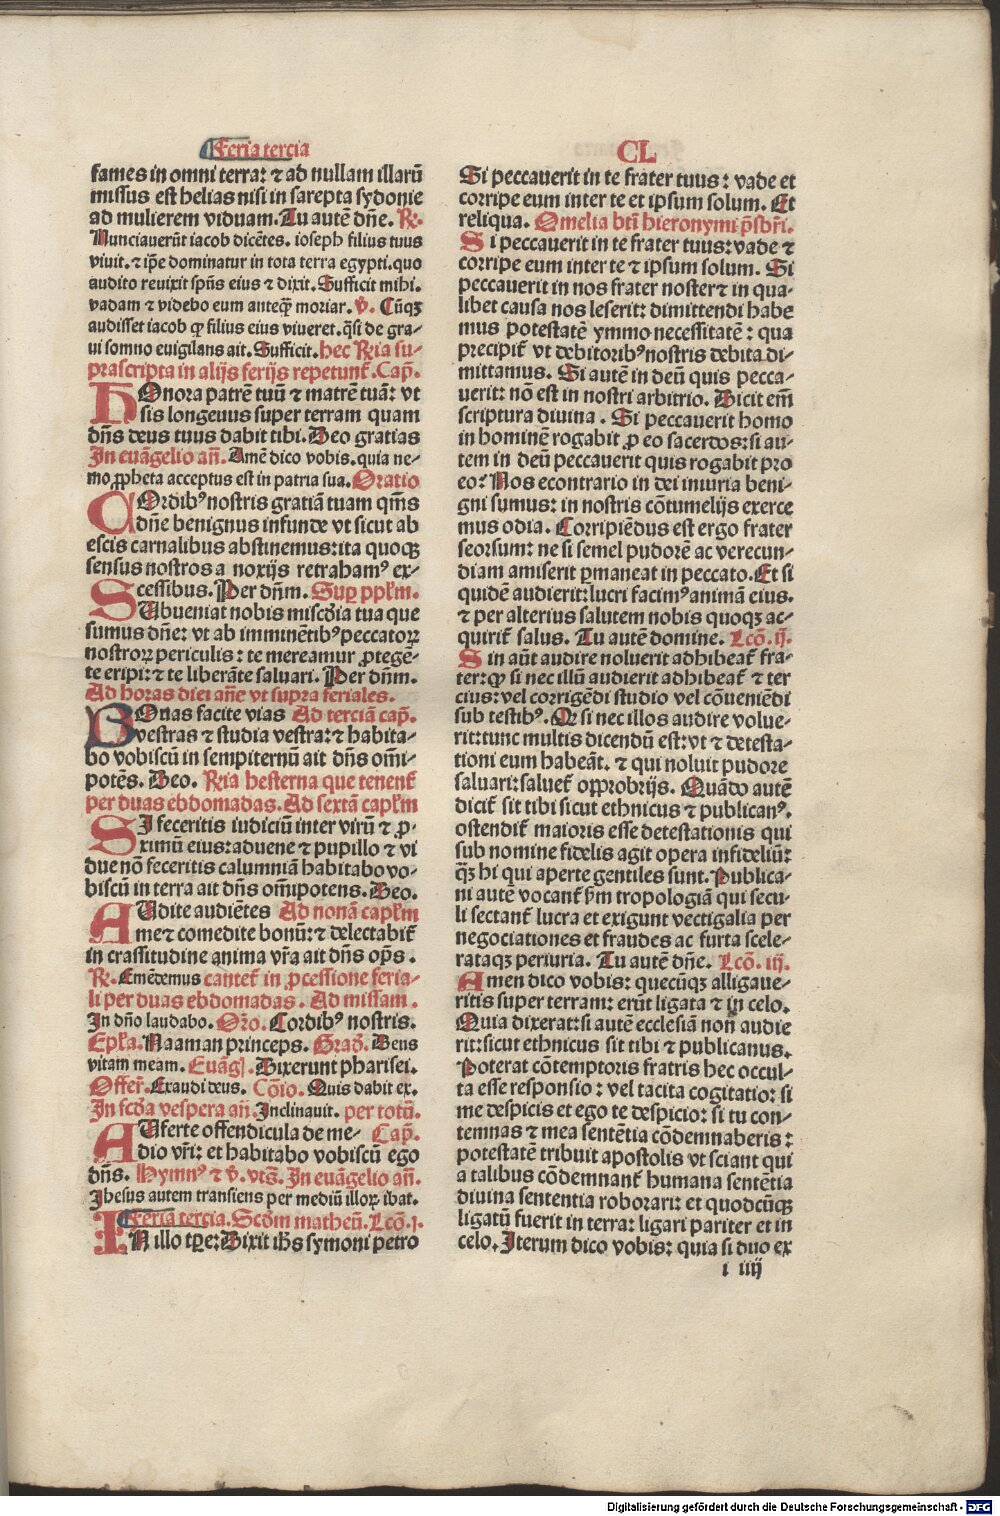 Feria tercia
fames in omni terra: ⁊ ad nullam illarū
missus est helias nisi in sarepta sydonie
ad mulierem viduam. Tu autē dn̄e. R̄.
Nunciauerūt iacob dicētes. ioseph filius tuus
viuit. ⁊ ip̄e dominatur in tota terra egypti. quo
audito reuixit sp̄us eius ⁊ dixit. Sufficit mihi.
vadam ⁊ videbo eum anteq̄ꝫ moriar. v̄. Cūqꝫ
audisset iacob ꝙ filius eius viueret. q̄si de gra-
ui somno euigilans ait. Sufficit. hec Rr̄ia su-
prascripta in alijs ferijs repetunt᷑. Cap̄.
HOnora patrē tuū ⁊ matrē tuā: vt
sis longeuus super terram quam
dn̄s deus tuus dabit tibi. Deo gratias
In euāgelio añ. Amē dico vobis. quia ne-
mo ꝓpheta acceptus est in patria sua. Oratio
COrdibꝰ nostris gratiā tuam qm̄s
dn̄e benignus infunde vt sicut ab
escis carnalibus abstinemus: ita quoqꝫ
sensus nostros a noxijs retrahamꝰ ex-
cessibus. Per dn̄m. Suꝑ pp̄lm.
SUbueniat nobis mīscd̄ia tua que
sumus dn̄e: vt ab imminētibꝰ peccatoꝝ
nostroꝝ periculis: te mereamur ꝓtegē-
te eripi: ⁊ te liberāte saluari. Per dn̄m.
Ad horas diei añe vt supra feriales.
BOnas facite vias Ad terciā cap̄.
vestras ⁊ studia vestra: ⁊ habita-
bo vobiscū in sempiternū ait dn̄s om̄i-
potēs. Deo. Rr̄ia hesterna que tenent᷑
per duas ebdomadas. Ad sextā capl̄m
SI feceritis iudiciū inter virū ⁊ ꝓ-
ximū eius: aduene ⁊ pupillo ⁊ vi
due nō feceritis calumniā habitabo vo-
biscū in terra ait dn̄s om̄ipotens. Deo.
AUdite audiētes Ad nonā capl̄m
me ⁊ comedite bonū: ⁊ delectabit᷑
in crassitudine anima vr̄a ait dn̄s op̄s.
R̄. Emēdemus cantet᷑ in ꝓcessione feria-
li per duas ebdomadas. Ad missam.
In dn̄o laudabo. Or̄o. Cordibꝰ nostris.
Epl̄a. Naaman princeps. Grad̄. Deus
vitam meam. Euāgl̄. Dixerunt pharisei.
Offer̄. Exaudi deus. Cōio. Quis dabit ex.
In scd̄a vespera añ Inclinauit. per totū.
AUferte offendicula de me- Cap̄.
dio vr̄i: et habitabo vobiscū ego
dn̄s. Hymnꝰ ⁊ v̄. vts̄. In euāgelio añ.
Jhesus autem transiens per mediū illoꝝ ibat.
Feria tercia. Scd̄m matheū. Lcō. j.
IN illo tꝑe: Dixit ih̄s symoni petro
CL
Si peccauerit in te frater tuus: vade et
corripe eum inter te et ipsum solum. Et
reliqua. Omelia bt̄i hieronymi p̄sbr̄i.
Si peccauerit in te frater tuus: vade ⁊
corripe eum inter te ⁊ ipsum solum. Si
peccauerit in nos frater noster ⁊ in qua-
libet causa nos leserit: dimittendi habe
mus potestatē ymmo necessitatē: qua
precipit᷑ vt debitoribꝰ nostris debita di-
mittamus. Si autē in deū quis pecca-
uerit: nō est in nostri arbitrio. Dicit em̄
scriptura diuina. Si peccauerit homo
in hominē rogabit ꝓ eo sacerdos: si au-
tem in deū peccauerit quis rogabit pro
eo? Nos econtrario in dei iniuria beni-
gni sumus: in nostris cōtumelijs exerce
mus odia. Corripiēdus est ergo frater
seorsum: ne si semel pudorē ac verecun-
diam amiserit ꝑmaneat in peccato. Et si
quidē audierit: lucri facimꝰ animā eius.
⁊ per alterius salutem nobis quoqꝫ ac-
quirit᷑ salus. Tu autē domine. Lcō. ij.
Sin aūt audire noluerit adhibeat᷑ fra-
ter: ꝙ si nec illū audierit adhibeat᷑ ⁊ ter
cius: vel corrigēdi studio vel cōueniēdi
sub testibꝰ. Qr̄ si nec illos audire volue-
rit: tunc multis dicendū est: vt ⁊ detesta-
tioni eum habeāt. ⁊ qui noluit pudore
saluari: saluet᷑ opprobrijs. Quādo autē
dicit᷑ sit tibi sicut ethnicus ⁊ publicanꝰ.
ostendit᷑ maioris esse detestationis qui
sub nomine fidelis agit opera infideliū:
q̄ꝫ hi qui aperte gentiles sunt. Publica-
ni autē vocant᷑ ẜm tropologiā qui secu-
li sectant᷑ lucra et exigunt vectigalia per
negociationes et fraudes ac furta scele-
rataqꝫ periuria. Tu autē dn̄e. Lcō. iij.
Amen dico vobis: quecūqꝫ alligaue-
ritis super terram: erūt ligata ⁊ in celo.
Quia dixerat: si autē ecclesiā non audie
rit: sicut ethnicus sit tibi ⁊ publicanus.
Poterat cōtemptoris fratris hec occul-
ta esse responsio: vel tacita cogitatio: si
me despicis et ego te despicio: si tu con-
temnas ⁊ mea sentētia cōdemnaberis:
potestatē tribuit apostolis vt sciant qui
a talibus cōdemnant᷑ humana sentētia
diuina sententia roborari: et quodcūqꝫ
ligatū fuerit in terra: ligari pariter et in
celo. Iterum dico vobis: quia si duo ex
i iiij
Digitalisierung gefördert durch die Deutsche Forschungsgemeinschaft - DFG